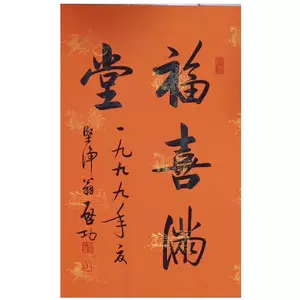 福喜满
堂
一九九九年夏
坚净翁启功